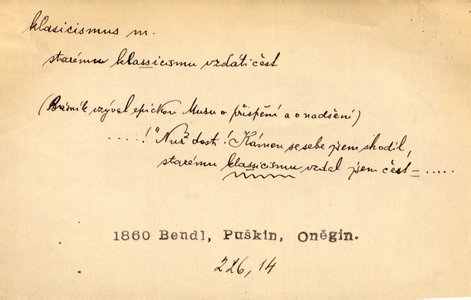 klasicismus m.
starému klassicismu vzdáti čest
(Básník vzýval epickou Musu o přispění a o nadšení)
....!" Nuž dosti! Kámen se sebe jsem shodil,
starému klassicismu vzdal jsem čest = .....
1860 Bendl, Puškin, Oněgin.
226, 14